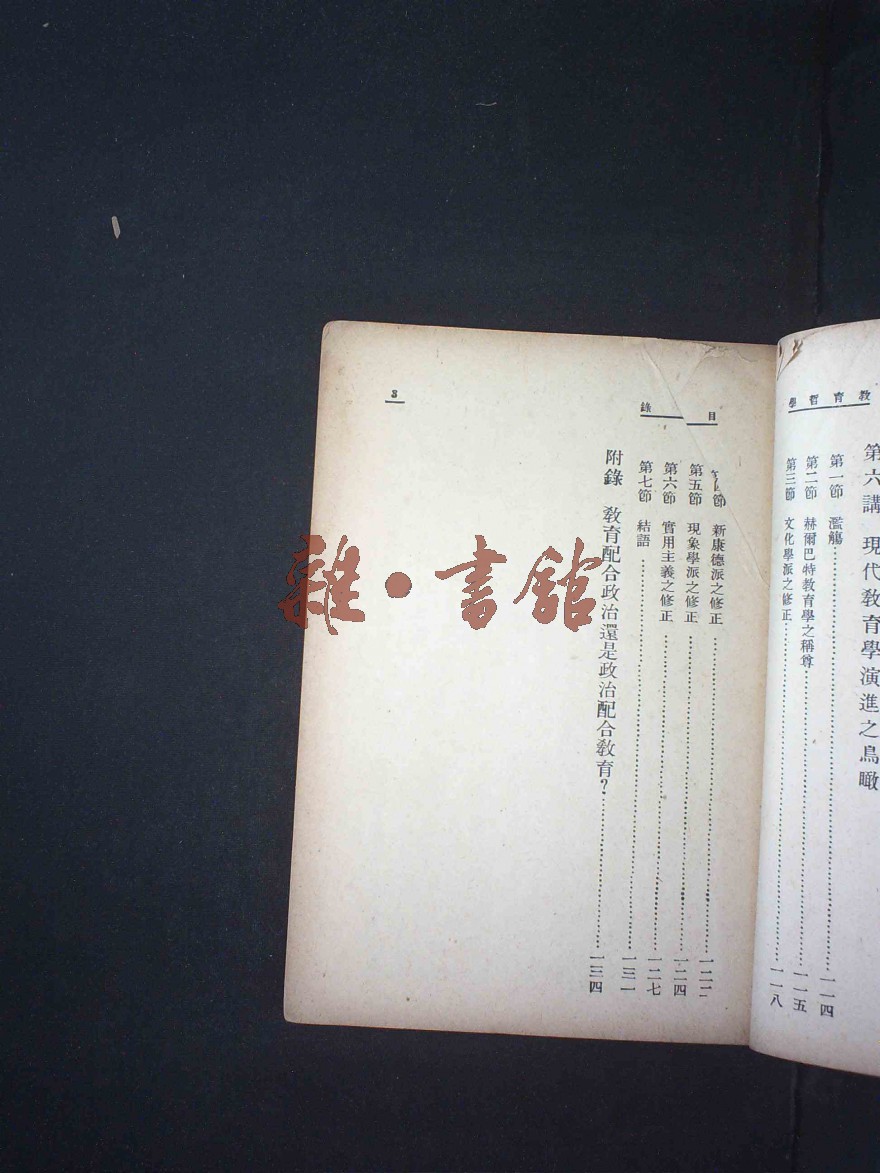 教育哲學
第六講 現代教育學演進之鳥瞰
第一節 濫觴……一一四
第二節 赫爾巴特教育學之稱尊……一一五
第三節 文化學派之修正……一一八
目錄
節 新康德派之修正……一二二
第五節 現象學派之修正……一二四
第六節 實用主義之修正……一二七
第七節 結語……一三一
附錄 教育配合政治還是政治配合教育?……一三四
3
雜·書館